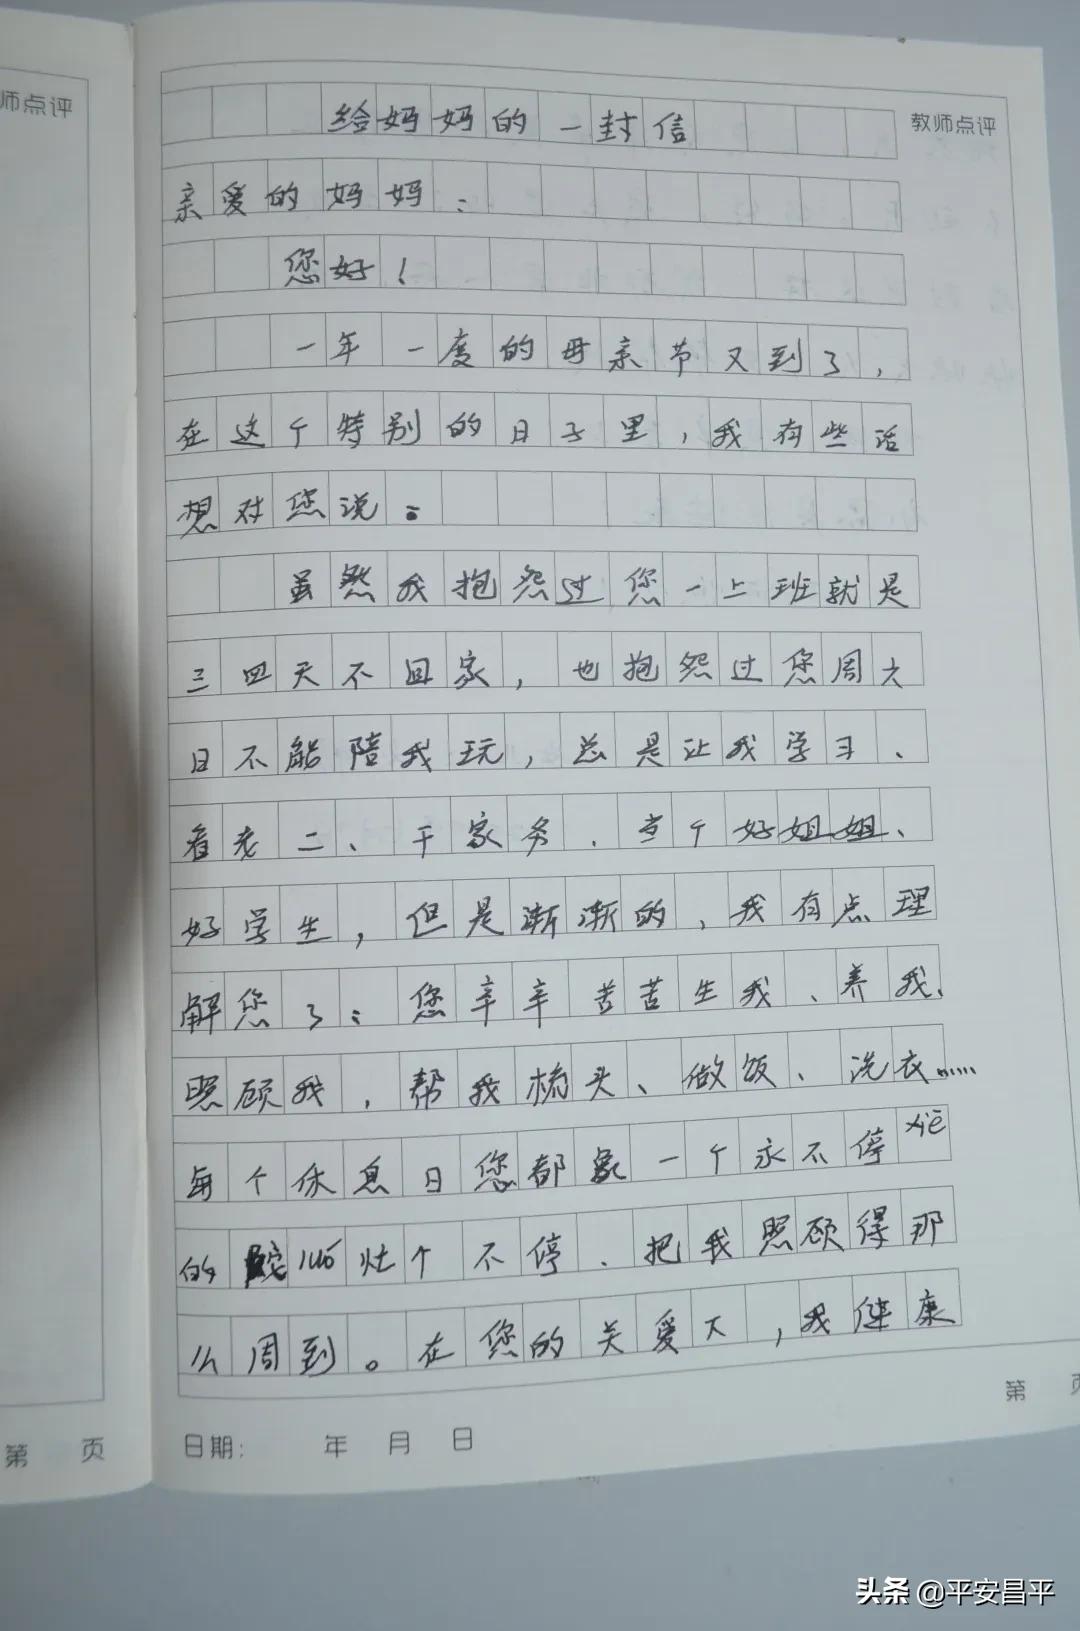 师点评
教师点评
给妈妈的一封信
亲爱的妈妈：
您好！
一年一度的母亲节又到了，
在这个特别的日子里，我有些话
想对您说：
虽然我抱怨过您一上班就是
三四天不回家，也抱怨过您周六
日不能陪我玩，总是让我学习、
看老二、干家务、当个好姐姐、
好学生，但是渐渐的，我有点理
解您了：您辛辛苦苦生我、养我、
照顾我，帮我梳头、做饭、洗衣……
每个休息日您都象一个永不停xiē
的陀luó灶个不停、把我照顾得那
么周到。在您的关爱下，我健康
第 页
日期： 年 月 日
第 页
头条 @平安昌平